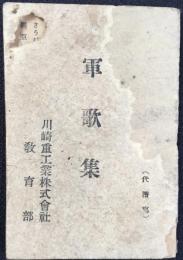 軍歌集
(代謄寫)
川崎重工業株式會社
教育部